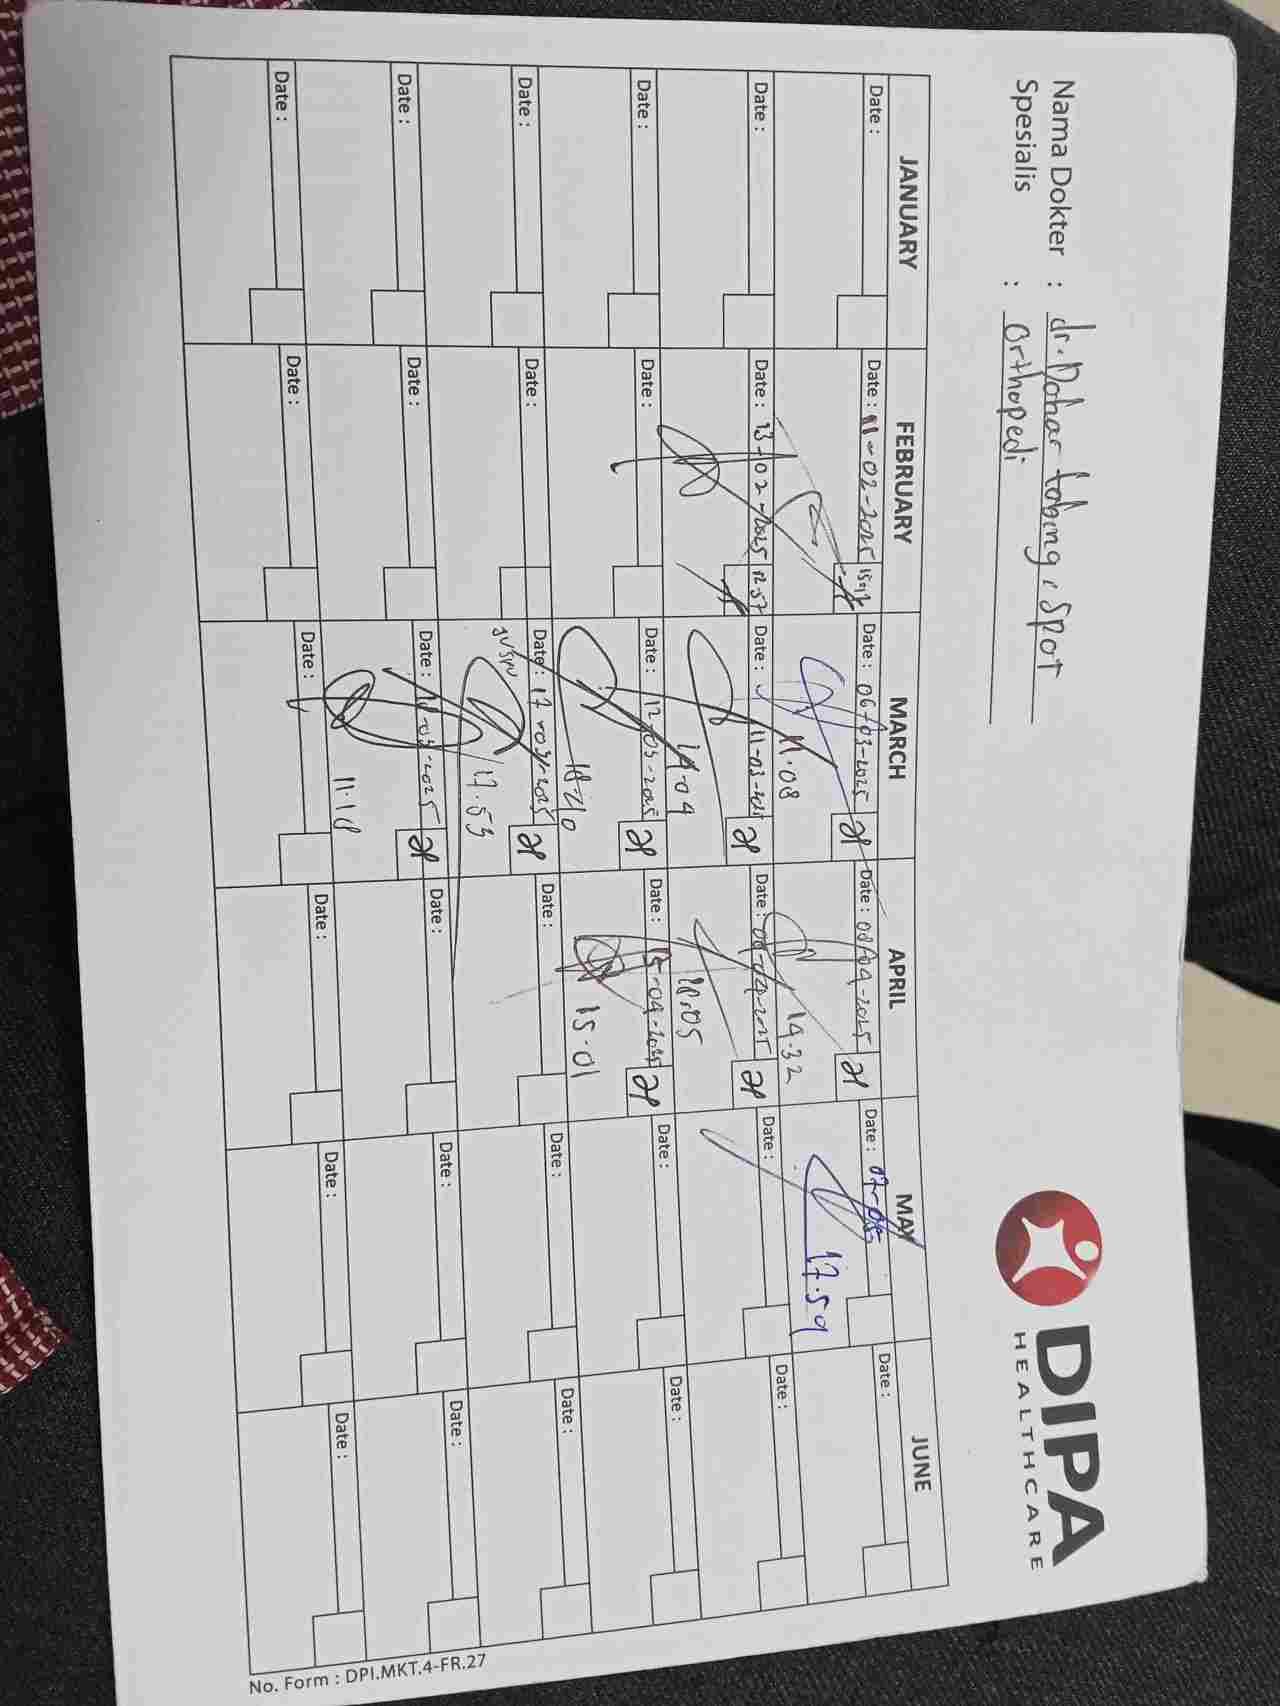 Nama Dokter : dr. Dohar tobing, Spot
Spesialis : Orthopedi
DIPA
HEALTHCARE
JANUARY FEBRUARY MARCH APRIL MAY JUNE
Date : Date : 11-02-2025 Date : 06-03-2025 Date : 08-04-2025 Date : 07-05 Date :
11.08 14.32 17.59
Date : Date : 13-02-2025 12.57 Date : 11-03-2025 Date : Date : Date :
14.04 18.05
Date : Date : Date : 12-03-2025 Date : 15-04-2025 Date : Date :
18.40 15.01
Date : Date : Date : 17-03-2025 Date : Date : Date :
17.53
Date : Date : Date : Date : Date : Date :
11.18
Date : Date : Date : Date : Date : Date :
No. Form : DPI.MKT.4-FR.27